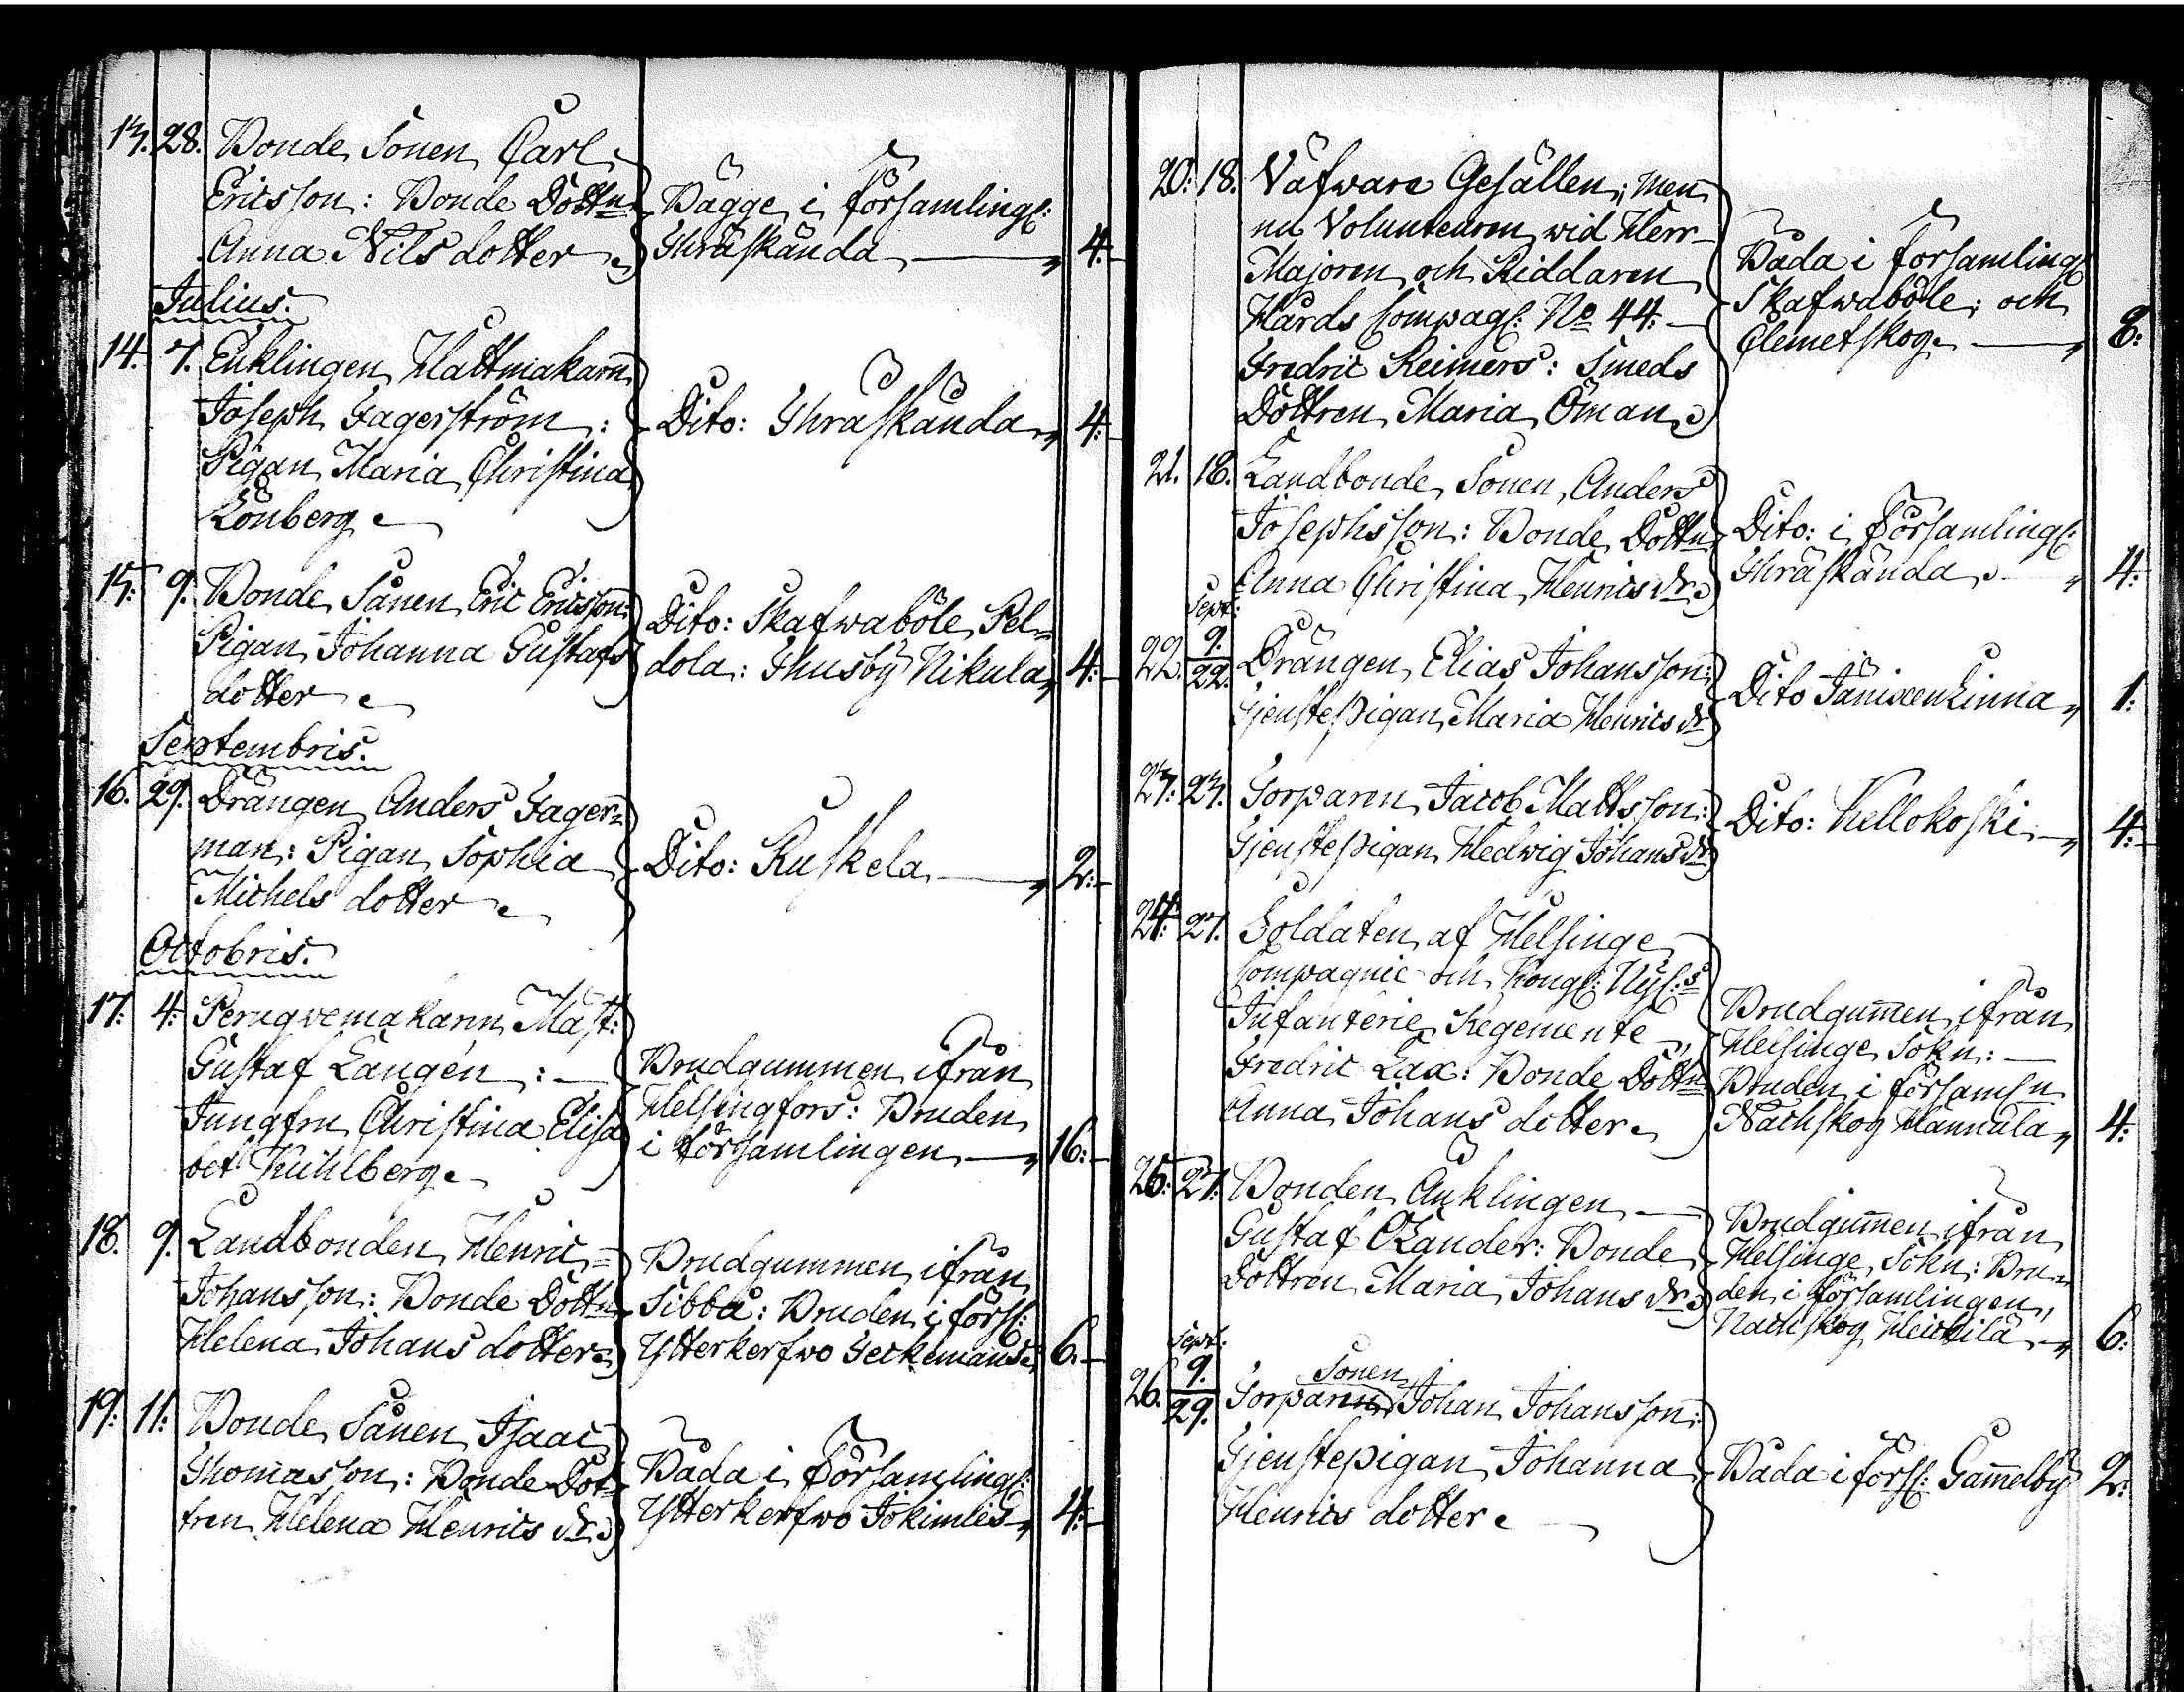 13. 28. Bonde Sonen Carl
Ericsson: Bonde Dottn
Anna Nils dotter
Bägge i församlingf:
Thräskända
4.
Julius.
14. 7. Enklingen Hattmakarn
Joseph Fagerström:
Pigan Maria Christina
Lönberg
Dito: Thräskända
4.
15. 9. Bonde Sånen Eric Ericsson:
Pigan Johanna Gustafs
dotter
Dito: Skafwaböle Pel=
dola: Thusby Nikula
4.
Septembris.
16. 29. Drängen Anders Fager=
man: Pigan Sophia
Michels dotter
Dito: Ruskela
2.
Octobris.
17: 4: Peruqvemakarn Mäst:
Gustaf Langén:
Jungfru Christina Elisa
bet Kühlberg
Brudgummen ifrån
Helsingfors: Bruden
i församlingen
16:
18. 9. Landbonden Henric=
Johansson: Bonde Dottn
Helena Johans dotter
Brudgummen ifrån
Sibbå: Bruden i försf:
Ytterkerfwo Jeckemans
6.
19: 11: Bonde Sånen Isaac
Thomasson: Bonde Dot=
tren Helena Henrics dr.
Båda i församlingf:
Ytterkerfwo Jokimies
4.
20: 18. Väfware Gesällen; men
nu Volunteuren wid Herr
Majoren och Riddaren
Hårds Compagf: No 44:
Fredric Reimers: Smeds
Dottren Maria Öman
Båda i församlingf
Skafwaböle; och
Clemetskog
8:
21. 18. Landbonde Sonen Anders
Josephsson: Bonde Dottn
Anna Christina Henrics dr.
Dito: i församlingf:
Thräskända
4:
Sept:
22. 9./22. Drängen Elias Johansson:
Tjenstepigan Maria Henrics dr
Dito Jänixenlinna
1:
23: 23. Torparen Jacob Mattsson:
Tjenstepigan Hedwig Johans dr
Dito: Kellokoski
4:
24: 27. Soldaten af Helsinge
Compagnie och Kongl: Nyl:s
Infanterie Regemente
Fredric Lax: Bonde Dottn
Anna Johans dotter
Brudgum̄en ifrån
Helsinge Sokn:
Bruden i församln
Nackskog Hannula
4:
25: 27: Bonden Änklingen
Gustaf Ekander: Bonde
Dottren Maria Johans dr.
Brudgum̄en ifrån
Helsinge Sokn: Bru=
den i församlingen,
Nackskog Heickilä
6:
Sept:
Sonen
26. 9./29. Torparen Johan Johansson:
Tjenstepigan Johanna
Henrics dotter
Båda i försf: Gam̄elby
2: